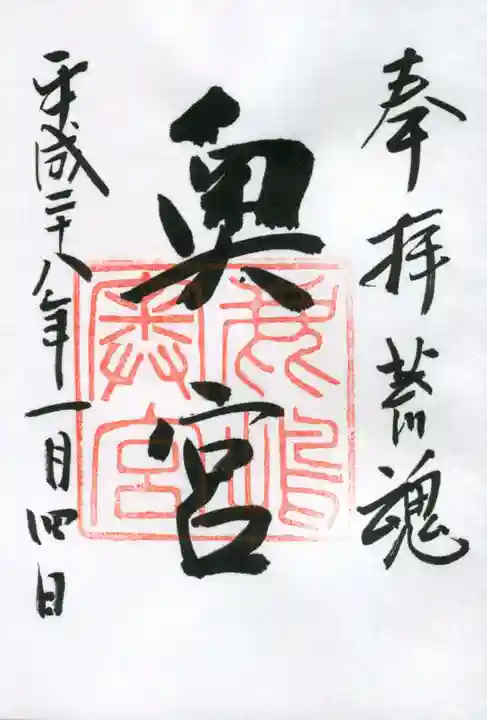 奉拝 荒魂
奥宮
平成二十八年一月四日